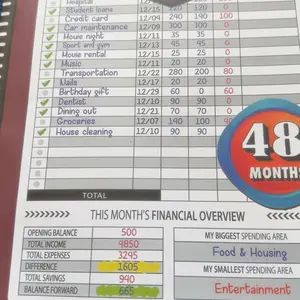 Hospital
Student loans 12/15 220 120 0
Credit card 12/04 290 190 100
Car maintenance 12/09 300 300 0
Movie night 12/11 35 35 0
Sport and gym 12/13 45 45 0
Movie rental 12/15 25 25 0
Music 12/11 20 20 0
Transportation 12/22 280 200 80
Nails 12/17 20 20 0
Birthday gift 12/29 60 0 60
Dentist 12/10 90 90 0
Dining out 12/21 70 70 0
Groceries 12/07 140 100
House cleaning 12/10 90 90
48
MONTHS
TOTAL
THIS MONTH'S FINANCIAL OVERVIEW
OPENING BALANCE 500
TOTAL INCOME 4850
TOTAL EXPENSES 3295
DIFFERENCE 1605
TOTAL SAVINGS 940
BALANCE FORWARD 665
MY BIGGEST SPENDING AREA
Food & Housing
MY SMALLEST SPENDING AREA
Entertainment